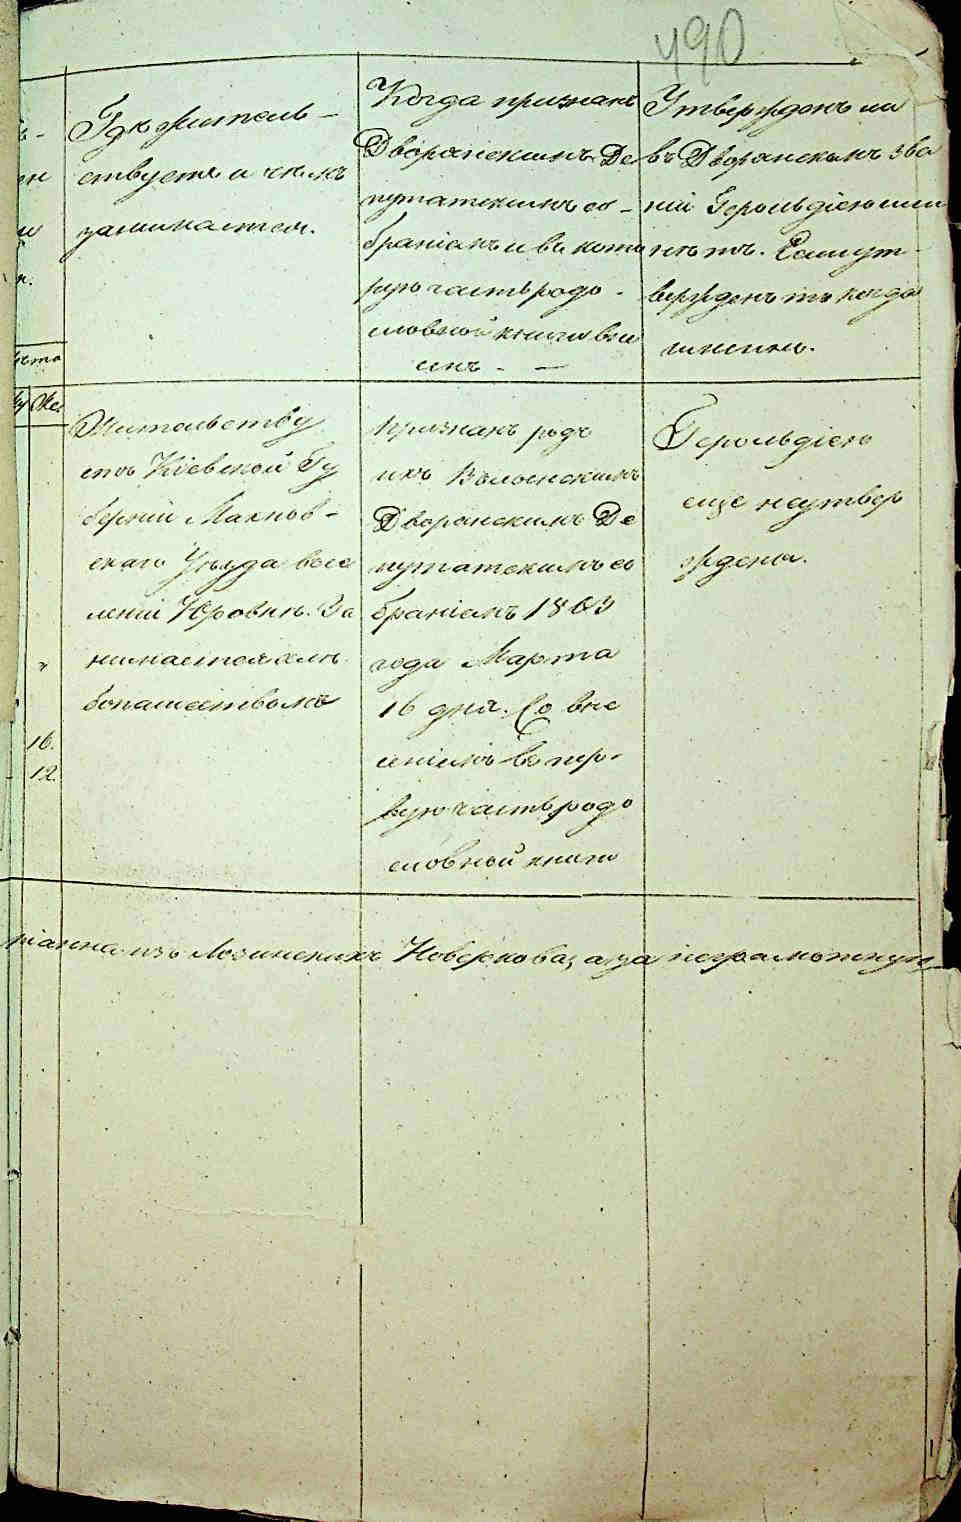 490
Гдѣ житель-
ствуетъ и чѣмъ
занимается.
Когда признанъ
Дворянскимъ Де
путатскимъ со-
браніемъ и въ кото
рую часть родо-
словной книги вне
сенъ. -
Утвержденъ ли
въ Дворянскомъ зва
ніи Герольдіею или
нѣтъ. Если ут-
вержденъ то когда
именно.
Жительству
етъ Кіевской Гу
берніи Махнов-
скаго Уѣзда въ се
леніи Юровкѣ. За
нимается хлѣ
бопашествомъ
Признанъ родъ
ихъ Волынскимъ
Дворянскимъ Де
путатскимъ со
браніемъ 1803
года Марта
16 дня. Со вне
сеніемъ въ пер-
вую часть родо
словной книги
Герольдіею
еще не утвер
ждены.
16.
12.
изъ Лозинскихъ а за неграмотную